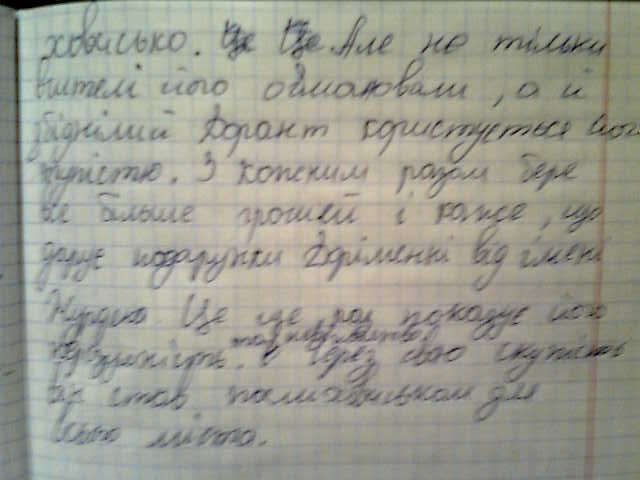 ховисько. Це Це Але не тільки
вчителі його обманювали, а й
збіднілий Дорант користується його
глупістю. З кожним разом бере
все більше грошей і каже, що
дарує подарунки Дорімені від імені
Журдена. Це ще раз показує його
та невігластво
через свою скупість
він став посміховиськом для
всього міста.